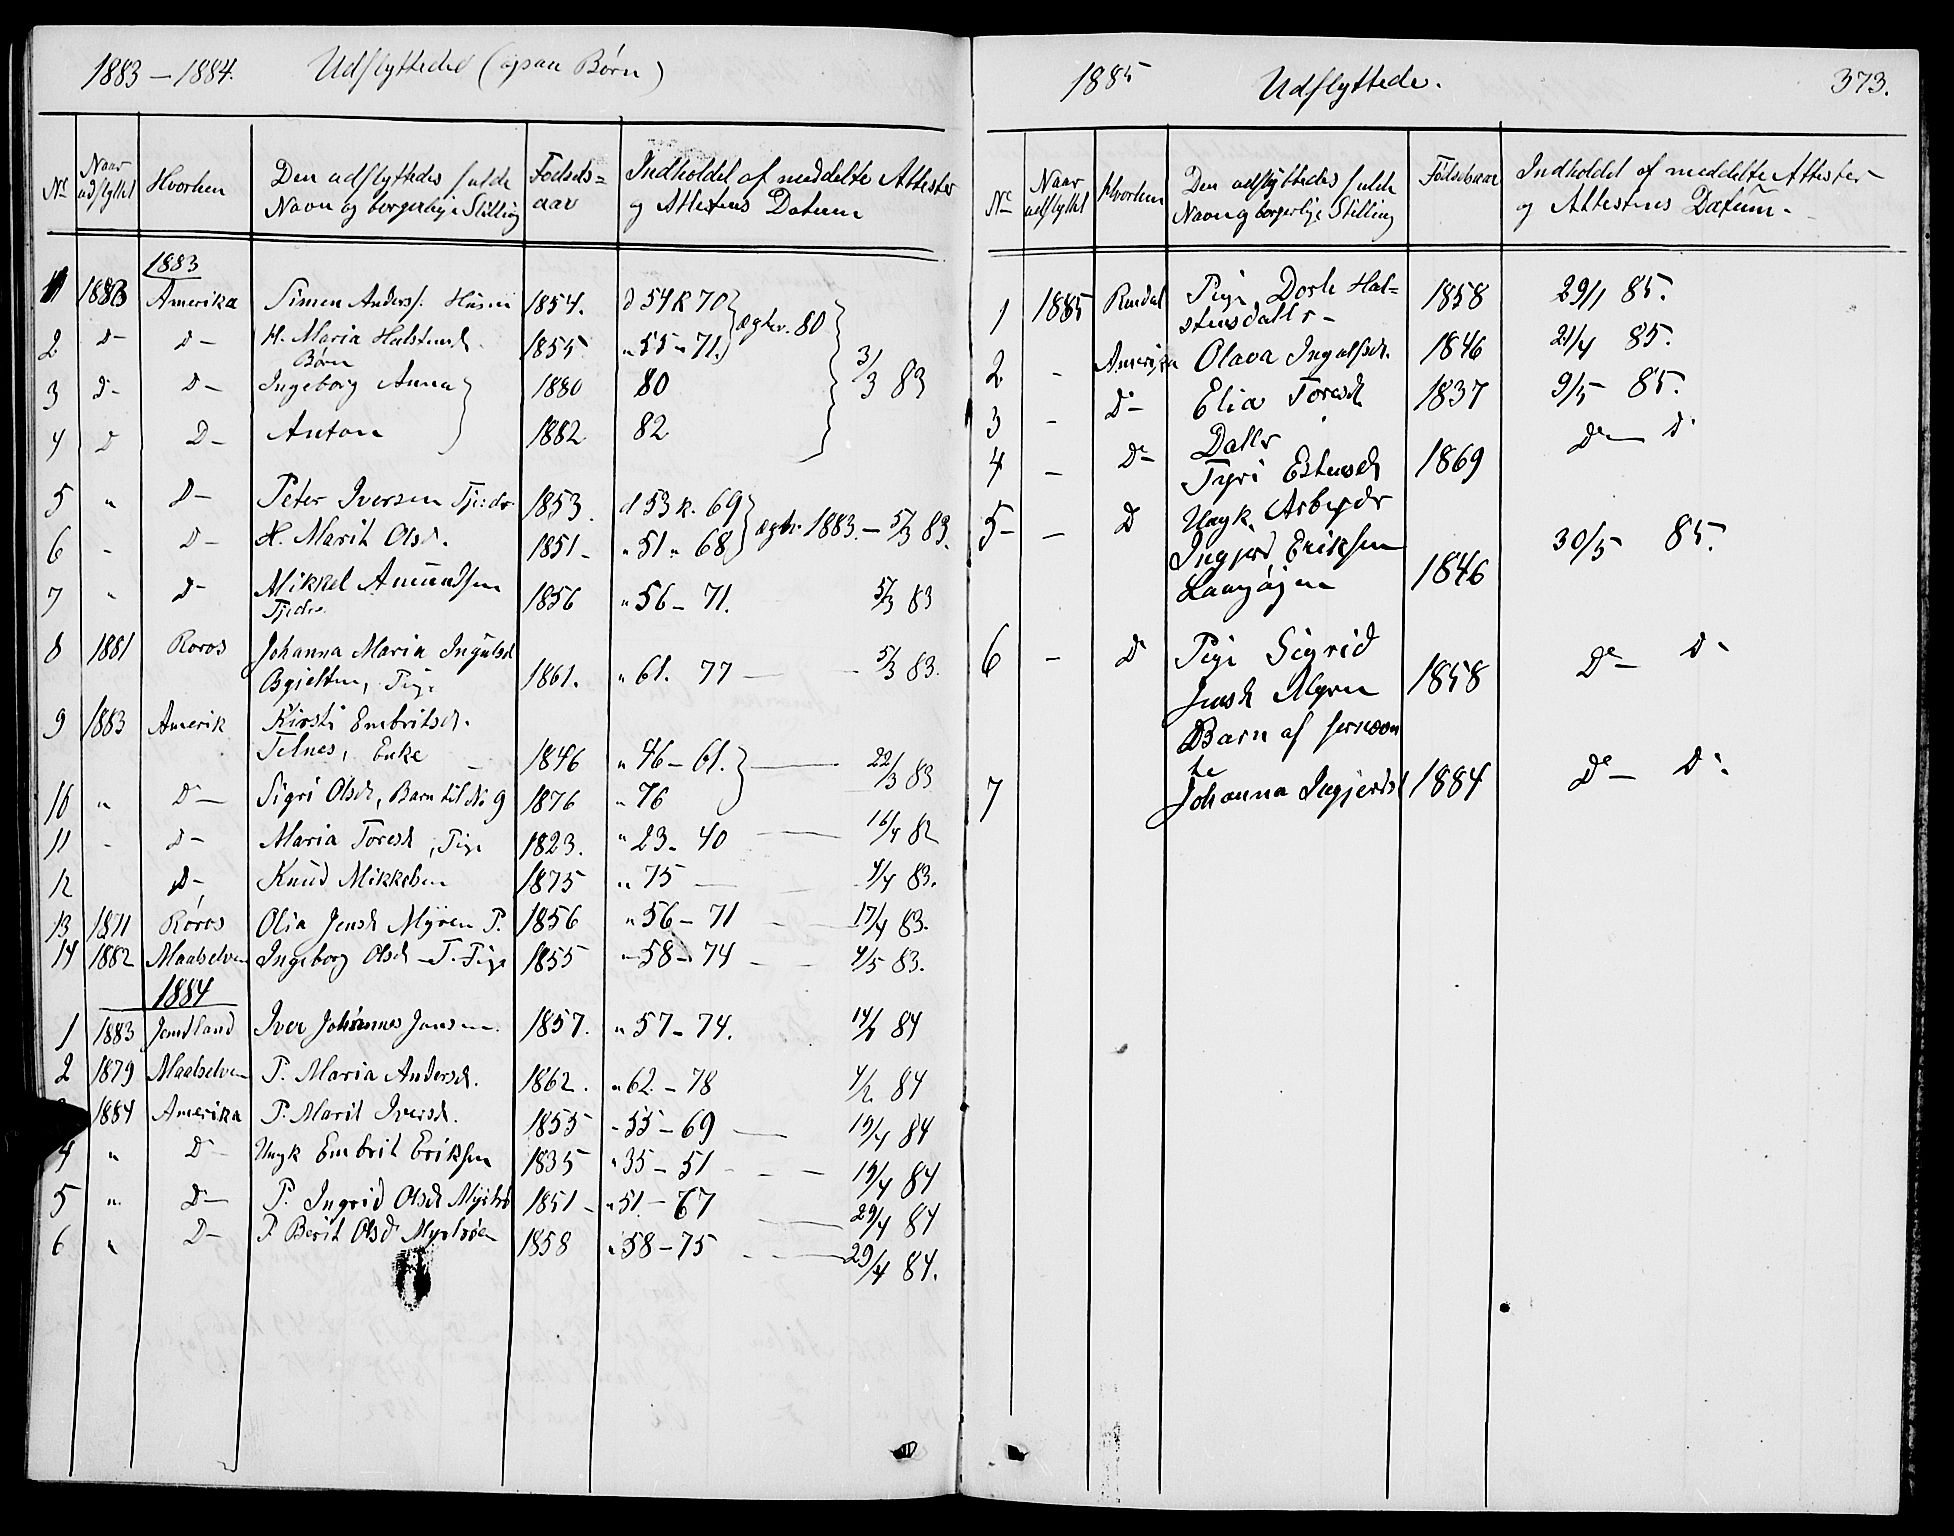 1883 – 1884. Udflyttede (ogsaa Børn)
Nr. Naar udflyttet Hvorhen Den udflyttedes fulde Navn og borgerlige Stilling Fødsels= aar Indholdet af meddelte Attester og Attestens Datum
1883
1 1883 Amerika Simen Anders. Husm 1854. d 54 k 70 } ægtev. 80
2 D– D– H. Maria Halstensd. 1855 „ 55 „ 71.
Børn
3 D– D– Ingeborg Anna 1880 80 3/3 83
4 D D– Anton 1882 82
5 „ D– Peter Iversen Tjendr 1853. d 53 k. 69 } ægtev. 1883. – 5/3 83.
6 „ D– H. Marit Olsd. 1851 – „ 51 „ 68
7 „ D– Mikkel Amundsen 1856 „ 56 – 71. 5/3 83
Tjedr.
8 1881 Røros Johanna Maria Ingulsd
Pige 1861. „ 61. 77 – – 5/3 83.
9 1883 Amerik Kirsti Embritsd.
Telnes, Enke 1846 „ 46 – 61. } – 22/3 83
10 „ D– Sigri Olsd, Barn til No 9 1876 „ 76
11 „ D– Maria Toresd, Pige 1823. „ 23 – 40 – 16/4 82
12 D– Knud Mikkelsen 1875 „ 75 – 4/4 83.
13 1871 Røros Olia Jensd Myren P. 1856 „ 56 – 71 – 17/4 83.
14 1882 Maalselven Ingeborg Olsd T. Pige 1855 – 58 – 74 – 4/5 83.
1884
1 1883 Jemtland Iver Johannes Jonsen. 1857. „ 57 – 74. 14/1 84
2 1879 Maalselven P. Maria Andersd. 1862. „ 62 – 78 4/2 84
1884 Amerika P. Marit Iversd. 1855 – 55 – 69 – 15/4 84
4 „ D– Ungk Embrit Eriksen 1835 „ 35 – 51 – 15/4 84
5 „ D– P. Ingrid Olsd 1851 – „ 51 – 67 – 29/4 84
6 „ D– P. Berit Olsd 1858 „ 58 – 75 – 29/4 84.
1885 Udflyttede. 373.
Nr. Naar udflyttet Hvorhen Den udflyttedes fulde Navn og borgerlige Stilling Fødselsaar Indholdet af meddelte Attester og Attestens Datum –
1 1885 Rendal Pige Dorte Hal= 1858 29/1 85.
stensdattr –
2 – Amerika Olava Ingulfsd. 1846 21/4 85.
3 – D– Elia Toresd 1837 9/5 85.
Dattr
4 – D– Tyri Estensd 1869 Do– Do
5 – D Ungk. Arbejdr
Ingjerd Eriksen 30/5 85.
1846
6 – D Pige Sigrid Do– Do
Jensd Myren 1858
Barn af fornævn
te
7 Johanna Ingjerdsd 1884 Do– Do.